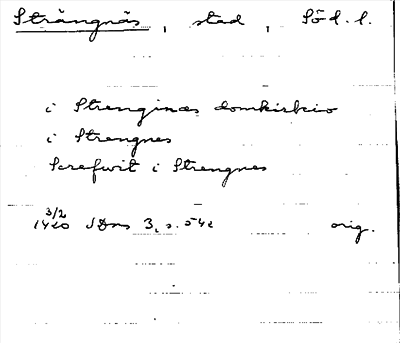 Strängnäs, stad, Söd. l.
i Strenginæs domkirkio
i Strengnes
Screfwit i Strengnes
3/2
1420 SDns 3, s. 542 orig.